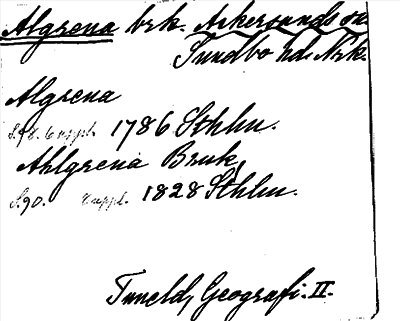 Algrena brk. Askersunds sn
Sundbo hd. Nrk.
Algrena
S. 98. 6 uppl. 1786 Sthlm.
Ahlgrena Bruk,
S. 90. 8 uppl. 1828 Sthlm.
Tuneld, Geografi. II.